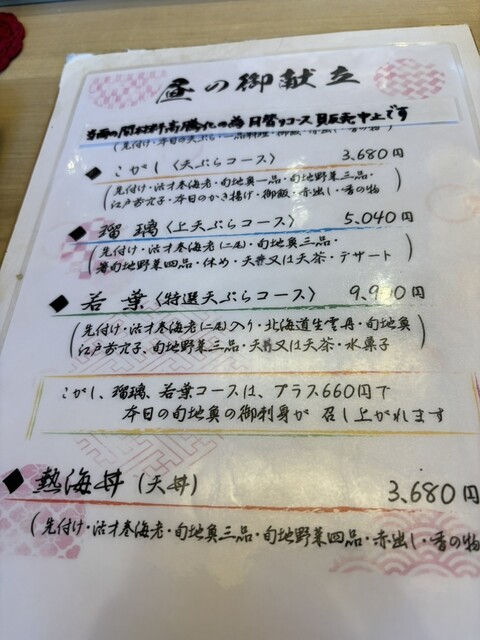 昼の御献立
当面の間材料高騰化の為日替りコース販売中止です
(先付け・本日の天ぷら・一品料理・御飯・赤出し・香の物)
◆ こがし〈天ぷらコース〉 3,680円
(先付け・活才巻海老・旬地魚一品・旬地野菜三品・
江戸前穴子・本日のかき揚げ・御飯・赤出し・香の物)
◆ 瑠璃〈上天ぷらコース〉 5,040円
(先付け・活才巻海老(二尾)・旬地魚三品・
旬地野菜四品・休め・天丼又は天茶・デザート)
◆ 若葉〈特選天ぷらコース〉
(先付け・活才巻海老(二尾)入り・北海道生雲丹・旬地魚
江戸前穴子、旬地野菜三品・天丼又は天茶・水菓子)
こがし、瑠璃、若葉コースは、プラス660円で
本日の旬地魚の御刺身が召し上がれます
◆ 熱海丼(天丼) 3,680円
(先付け・活才巻海老・旬地魚三品・旬地野菜四品・赤出し・香の物